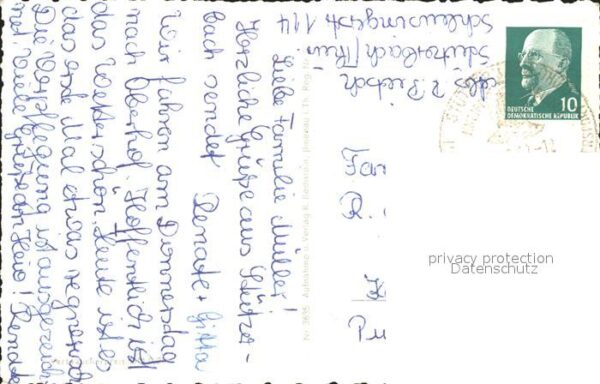 Abs. R. Pietsch
Stützerbach/Thür.
Schleusingerstr. 114
Liebe Familie Müller!
Herzliche Grüße aus Stützer-
bach sendet Renate + Gitta
Wir fahren am Donnerstag
nach Oberhof. Hoffentlich ist
das Wetter schön. Heute ist es
das erste Mal etwas regnerisch
Die Verpflegung ist ausgezeich
net. Viele Grüße an Heio! Renate
Nr. 3635 Aufnahme u. Verlag
DEUTSCHE
DEMOKRATISCHE REPUBLIK
10
Fam
R.
privacy protection
Datenschutz